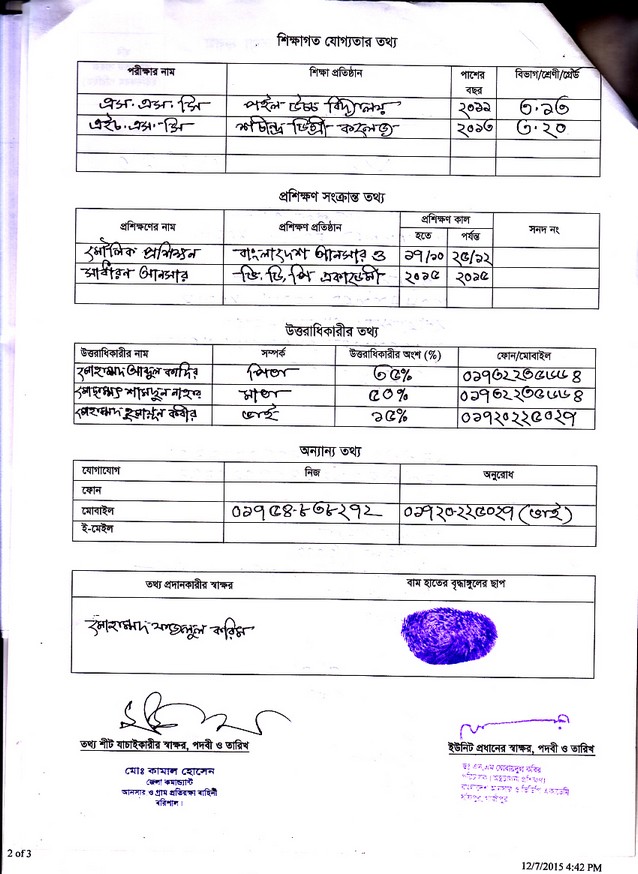 শিক্ষাগত যোগ্যতার তথ্য
পরীক্ষার নাম শিক্ষা প্রতিষ্ঠান পাশের বছর বিভাগ/শ্রেণী/গ্রেড
এস.এস.সি পইল উচ্চ বিদ্যালয় ২০১১ ৩.১৩
এইচ.এস.সি শচীন্দ্র ডিগ্রী কলেজ ২০১৩ ৩.২০
প্রশিক্ষণ সংক্রান্ত তথ্য
প্রশিক্ষণের নাম প্রশিক্ষণ প্রতিষ্ঠান প্রশিক্ষণ কাল সনদ নং
হতে পর্যন্ত
মৌলিক প্রশিক্ষন বাংলাদেশ আনসার ও ১৭/১০ ২৫/১২
সাধারন আনসার ভি.ডি.পি একাডেমী ২০১৫ ২০১৫
উত্তরাধিকারীর তথ্য
উত্তরাধিকারীর নাম সম্পর্ক উত্তরাধিকারীর অংশ (%) ফোন/মোবাইল
মোহাম্মদ আব্দুল কাদির পিতা ৩৫% ০১৭৩২২৩৫৬৬৪
মোছাম্মৎ শামছুন নাহার মাতা ৫০% ০১৭৩২২৩৫৬৬৪
মোহাম্মদ হুমায়ুন কবীর ভাই ১৫% ০১৭২০২২৫০২৭
অন্যান্য তথ্য
যোগাযোগ নিজ অনুরোধ
ফোন
মোবাইল ০১৭৫৪-৮৩৮২৭২ ০১৭২০-২২৫০২৭ (ভাই)
ই-মেইল
তথ্য প্রদানকারীর স্বাক্ষর বাম হাতের বৃদ্ধাঙ্গুলের ছাপ
মোহাম্মদ ফজলুল করিম
তথ্য শীট যাচাইকারীর স্বাক্ষর, পদবী ও তারিখ ইউনিট প্রধানের স্বাক্ষর, পদবী ও তারিখ
মোঃ কামাল হোসেন
জেলা কমান্ড্যান্ট
আনসার ও গ্রাম প্রতিরক্ষা বাহিনী
বরিশাল।
বাংলাদেশ আনসার ও ভিডিপি একাডেমি
সফিপুর, গাজীপুর
2 of 3
12/7/2015 4:42 PM